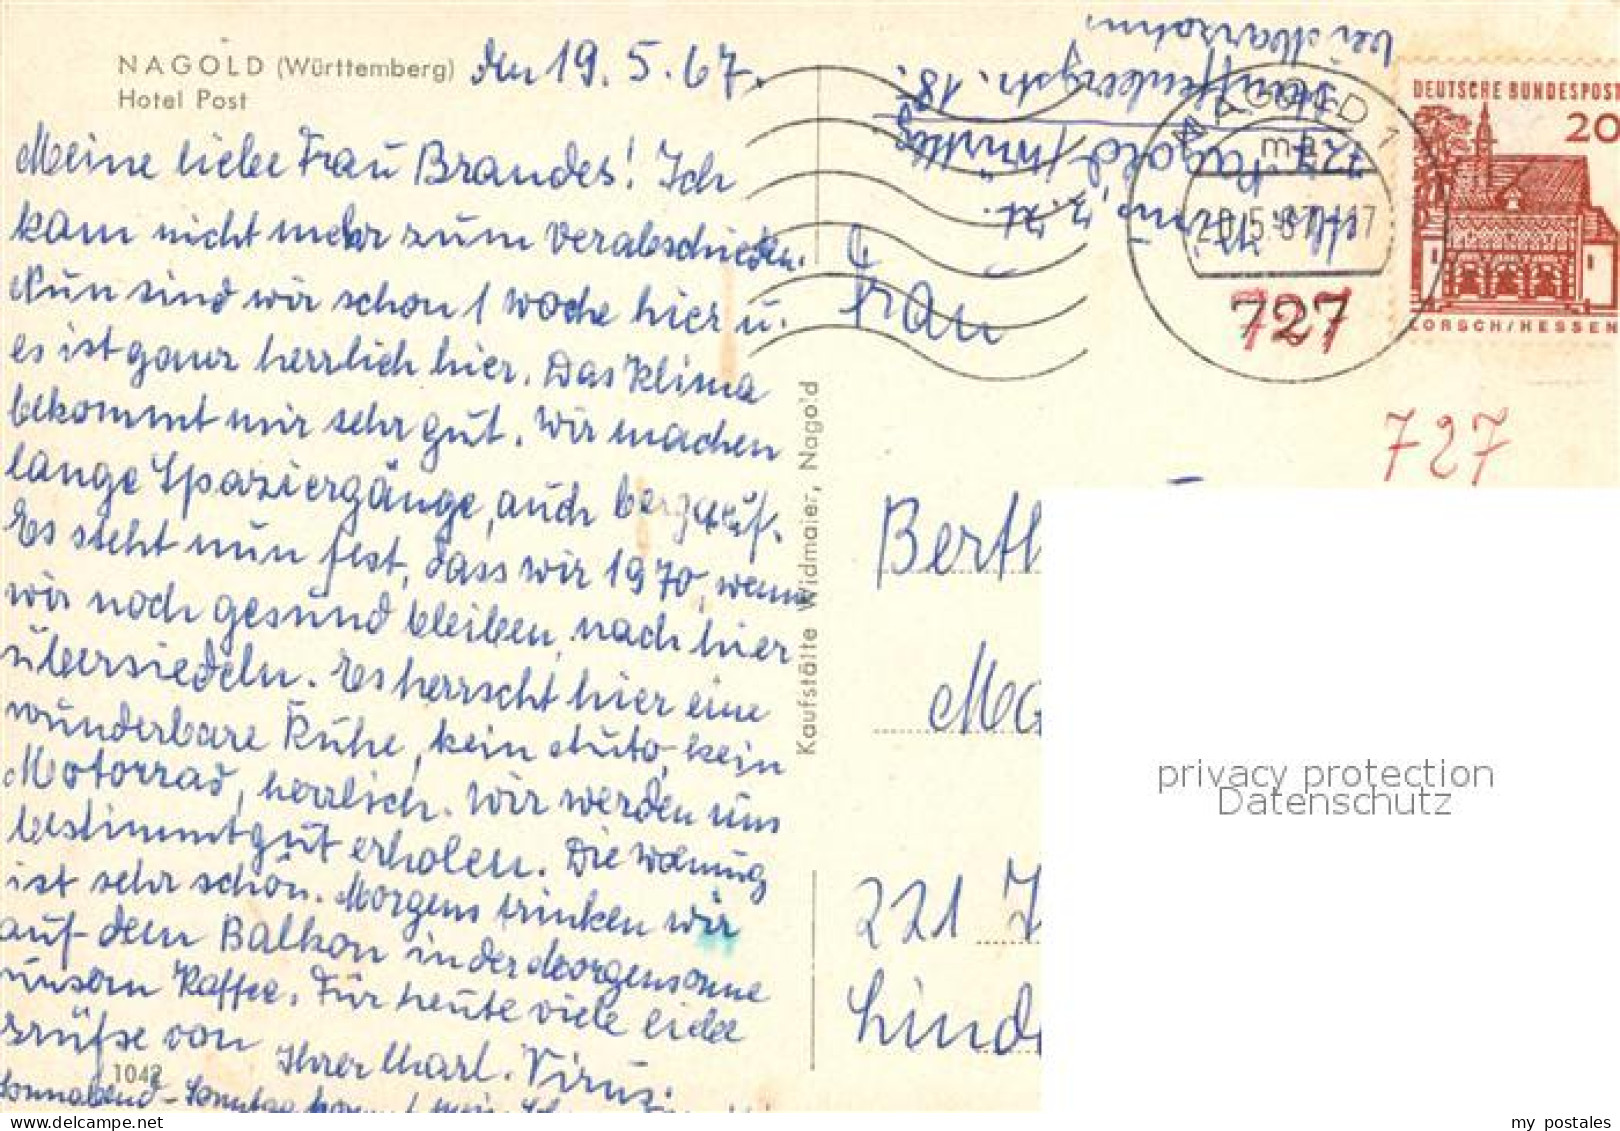 NAGOLD (Württemberg)
Hotel Post
den 19. 5. 67.
Meine liebe Frau Brandes! Ich
kam nicht mehr zum verabschieden.
Nun sind wir schon 1 Woche hier u.
es ist ganz herrlich hier. Das Klima
bekommt mir sehr gut. Wir machen
lange Spaziergänge, auch bergauf.
Es steht nun fest, dass wir 1970, wenn
wir noch gesund bleiben, nach hier
übersiedeln. Es herrscht hier eine
wunderbare Ruhe, kein Auto, kein
Motorrad, herrlich. Wir werden uns
bestimmt gut erholen. Die Wonung
ist sehr schön. Morgens trinken wir
auf dem Balkon in der Morgensonne
unsern Kaffee. Für heute viele liebe
Grüße von
Ihrer Charl.
1042
Sonnabend - Sonntag kommt mein
Kaufstätte Widmaier, Nagold
z. Zt.
727 Nagold/Württbg
Stauffenbergstr. 18.
bei
NAGOLD 1
mb
20.5.67-17
727
DEUTSCHE BUNDESPOST
20
LORSCH/HESSEN
727
Frau
Berth
221
Lind
privacy protection
Datenschutz
my postales